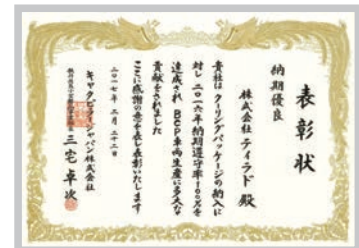 表彰状
納期優良
株式会社 ティラド 殿
貴社はクーリングパッケージの納入に
対し二〇一六年納期遵守率100%を
達成され BCP車両生産に多大な
貢献をされました
ここに感謝の意を表し表彰いたします
二〇一七年 二月 二十二日
キャタピラージャパン株式会社
三宅 卓次